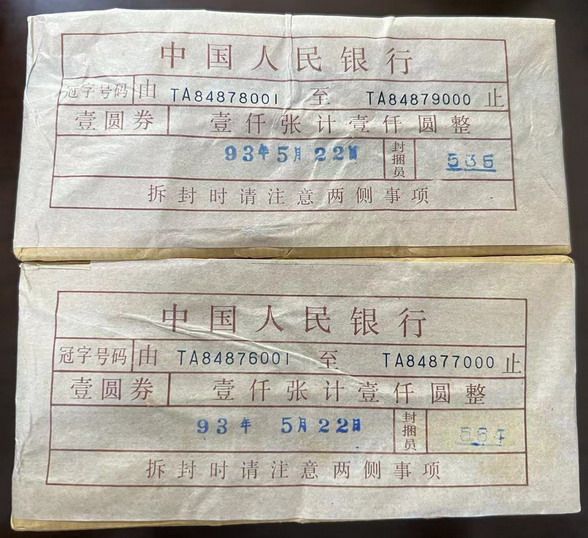 中国人民银行
冠字号码 由 TA84878001 至 TA84879000 止
壹圆券 壹仟张计壹仟圆整
93年5月22日 封捆员 535
拆封时请注意两侧事项
中国人民银行
冠字号码 由 TA84876001 至 TA84877000 止
壹圆券 壹仟张计壹仟圆整
93年 5月22日 封捆员
拆封时请注意两侧事项